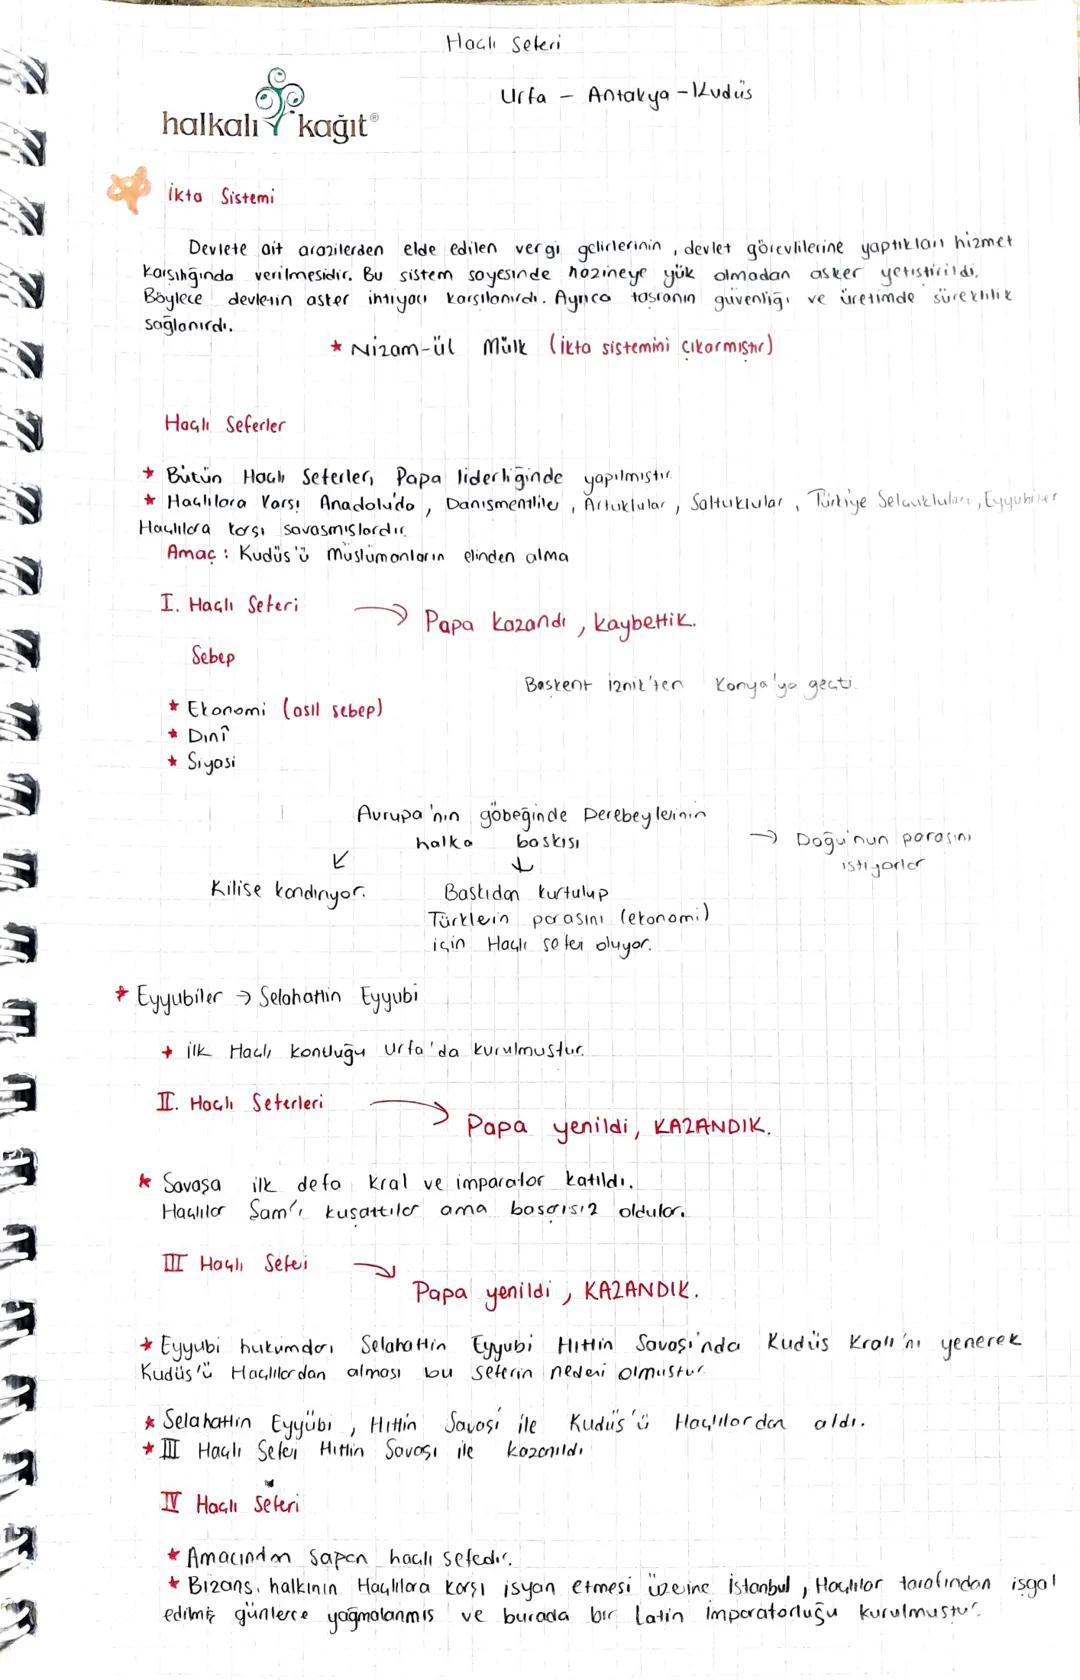 Haçlı Seferi
Urfa - Antakya - Kudüs
halkalı kağıt®
İkta Sistemi
Devlete ait arazilerden elde edilen vergi gelirlerinin, devlet görevlilerine yaptıkları hizmet
karşılığında verilmesidir. Bu sistem sayesinde hazineye yük olmadan asker yetiştirildi.
Böylece devletin asker ihtiyacı karşılanırdı. Ayrıca taşranın güvenliği ve üretimde süreklilik
sağlanırdı.
* Nizam-ül Mülk (İkta sistemini çıkarmıştır)
Haçlı Seferler
* Bütün Haçlı Seferler, Papa liderliğinde yapılmıştır.
* Haçlılara karşı Anadolu'da, Danışmentliler, Artuklular, Saltuklular, Türkiye Selçukluları, Eyyubiler
Haçlılara karşı savaşmışlardır.
Amaç: Kudüs'ü Müslümanların elinden alma
I. Haçlı Seferi → Papa kazandı, kaybettik.
Sebep
Başkent İznik'ten Konya'ya geçti.
* Ekonomi (asıl sebep)
* Dinî
* Siyasi
Avrupa'nın göbeğinde Derebeylerinin
halka baskısı → Doğu'nun parasını
istiyorlar
↙ ↓
Kilise kandırıyor. Baskıdan kurtulup
Türklerin parasını (ekonomi)
için Haçlı seferi oluyor.
* Eyyubiler → Selahattin Eyyubi
+ İlk Haçlı kontluğu Urfa'da kurulmuştur.
II. Haçlı Seferleri → Papa yenildi, KAZANDIK.
* Savaşa ilk defa kral ve imparator katıldı.
Haçlılar Şam'ı kuşattılar ama başarısız oldular.
III Haçlı Seferi → Papa yenildi, KAZANDIK.
* Eyyubi hukumdarı Selahattin Eyyubi Hıttin Savaşı'nda Kudüs Kralı'nı yenerek
Kudüs'ü Haçlılardan alması bu seferin nedeni olmuştur.
* Selahattin Eyyübi, Hıttin Savaşı ile Kudüs'ü Haçlılardan aldı.
* III Haçlı Seferi Hıttin Savaşı ile kazanıldı
IV Haçlı Seferi
* Amacından sapan haçlı seferdir.
* Bizans halkının Haçlılara karşı isyan etmesi üzerine İstanbul, Haçlılar tarafından işgal
edilmiş günlerce yağmalanmış ve burada bir Latin İmparatorluğu kurulmuştur.